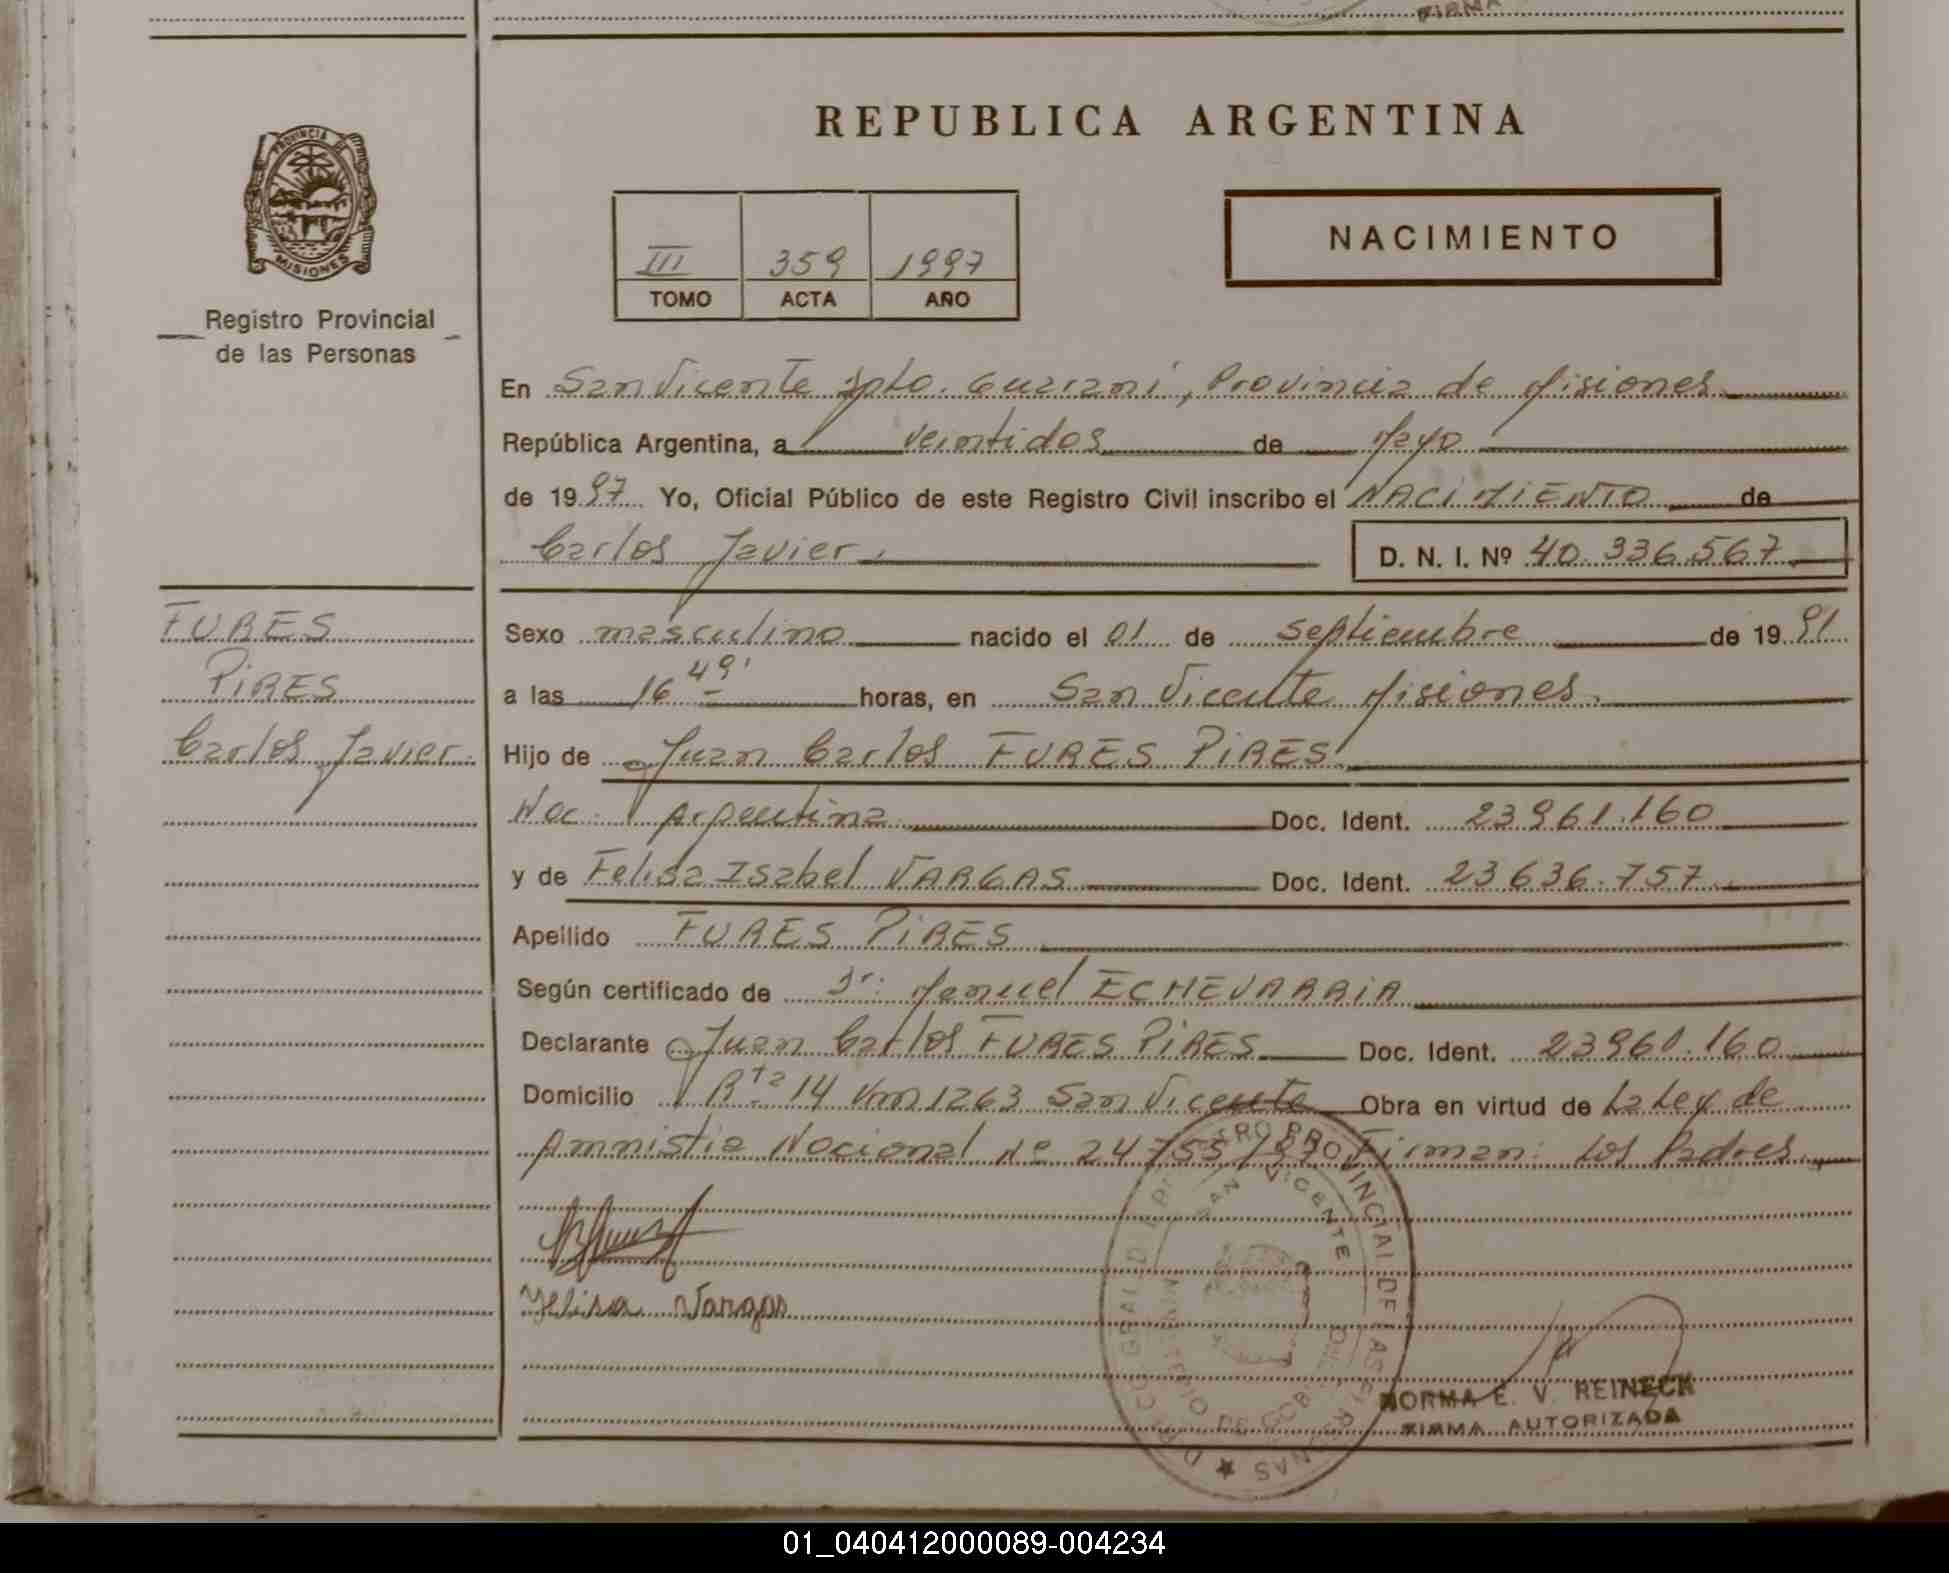 FIRMA
REPUBLICA ARGENTINA
PROVINCIA DE
MISIONES
III 359 1997
TOMO ACTA AÑO
NACIMIENTO
Registro Provincial
de las Personas
En San Vicente Dpto. Guarani, Provincia de Misiones
República Argentina, a veintidos de Mayo
de 1997 Yo, Oficial Público de este Registro Civil inscribo el NACIMIENTO de
Carlos Javier. D. N. I. Nº 40.336.567
FURES
PIRES
Carlos Javier.
Sexo masculino nacido el 01 de septiembre de 1991
a las 16 49' horas, en San Vicente Misiones.
Hijo de Juan Carlos FURES PIRES
Nac. Argentina Doc. Ident. 23961.160
y de Felisa Isabel VARGAS Doc. Ident. 23636.757
Apellido FURES PIRES
Según certificado de Dr. Manuel ECHEVARRIA
Declarante Juan Carlos FURES PIRES Doc. Ident. 23961.160
Domicilio Rta 14 Km 1263 San Vicente Obra en virtud de La Ley de
Amnistia Nacional Nº 24755/97 Firman: Los Padres.
Felisa Vargas
REGISTRO PROVINCIAL DE LAS PERSONAS
SAN VICENTE
MINISTERIO DE GOB
NORMA E. V. REINECK
FIRMA AUTORIZADA
01_040412000089-004234